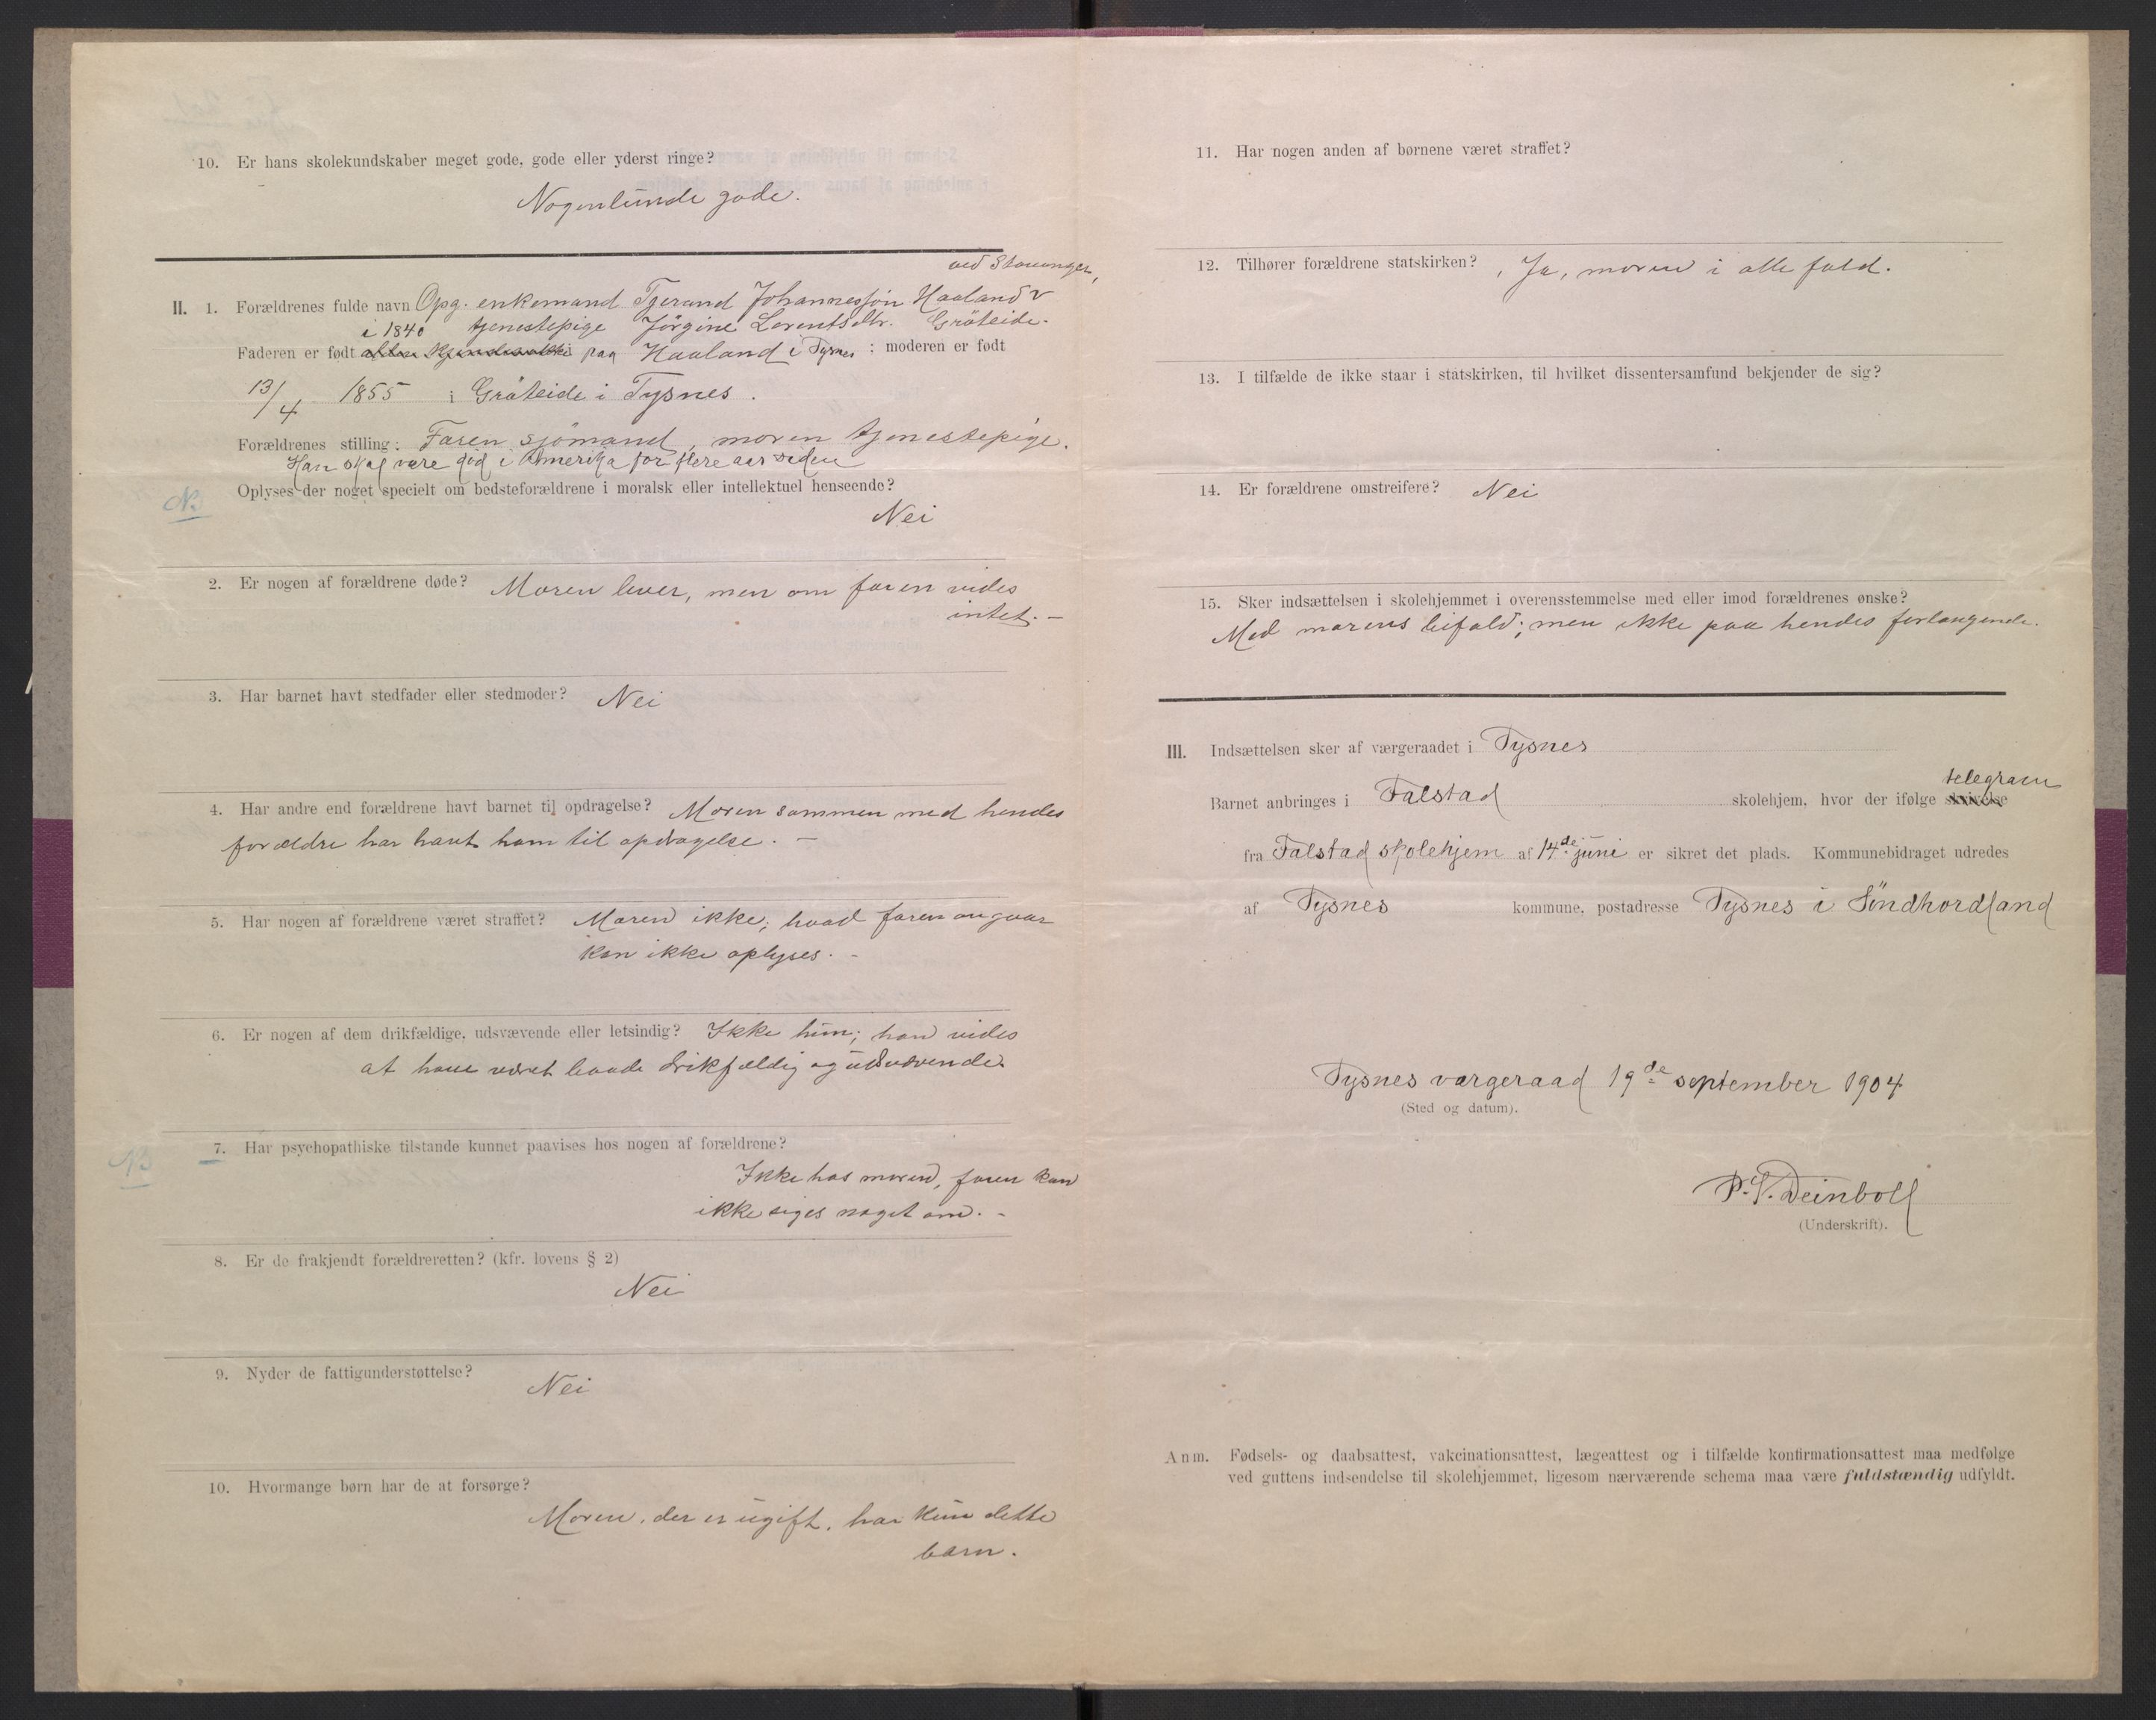 10. Er hans skolekundskaber meget gode, gode eller yderst ringe?
Nogenlunde gode.
ved Stavanger,
II. 1. Forældrenes fulde navn Opg. enkemand Tjerand Johannesson Haaland v
i 1840 tjenestepige Jörgine Lorentsdtr. Gröteide.
Faderen er født paa Haaland i Tysnes; moderen er født
13/4 1855 i Gröteide i Tysnes.
Forældrenes stilling: Faren sjömand, moren tjenestepige.
Han skal være död i Amerika for flere aar siden
NB Oplyses der noget specielt om bedsteforældrene i moralsk eller intellektuel henseende?
Nei
2. Er nogen af forældrene døde? Moren lever, men om faren vides
intet. —
3. Har barnet havt stedfader eller stedmoder? Nei
4. Har andre end forældrene havt barnet til opdragelse? Moren sammen med hendes
forældre har havt ham til opdragelse. —
5. Har nogen af forældrene været straffet? Moren ikke; hvad faren angaar
kan ikke oplyses. -
6. Er nogen af dem drikfældige, udsvævende eller letsindig? Ikke hun; han vides
at have været baade drikfældig og udsvævende.
NB 7. Har psychopathiske tilstande kunnet paavises hos nogen af forældrene?
Ikke hos moren, faren kan
ikke siges noget om. -
8. Er de frakjendt forældreretten? (kfr. lovens § 2)
Nei
9. Nyder de fattigunderstøttelse?
Nei
10. Hvormange børn har de at forsørge?
Moren, der er ugift, har kun dette
barn.
11. Har nogen anden af børnene været straffet?
12. Tilhører forældrene statskirken? Ja, moren i alle fald.
13. I tilfælde de ikke staar i statskirken, til hvilket dissentersamfund bekjender de sig?
14. Er forældrene omstreifere? Nei
15. Sker indsættelsen i skolehjemmet i overensstemmelse med eller imod forældrenes ønske?
Med morens bifald; men ikke paa hendes forlangende.
III. Indsættelsen sker af værgeraadet i Tysnes
telegram
Barnet anbringes i Falstad skolehjem, hvor der ifølge skrivelse
fra Falstad skolehjem af 14de juni er sikret det plads. Kommunebidraget udredes
af Tysnes kommune, postadresse Tysnes i Söndhordland
Tysnes værgeraad 19de september 1904
(Sted og datum).
P. S. Deinboll
(Underskrift).
Anm. Fødsels- og daabsattest, vakcinationsattest, lægeattest og i tilfælde konfirmationsattest maa medfølge
ved guttens indsendelse til skolehjemmet, ligesom nærværende schema maa være fuldstændig udfyldt.